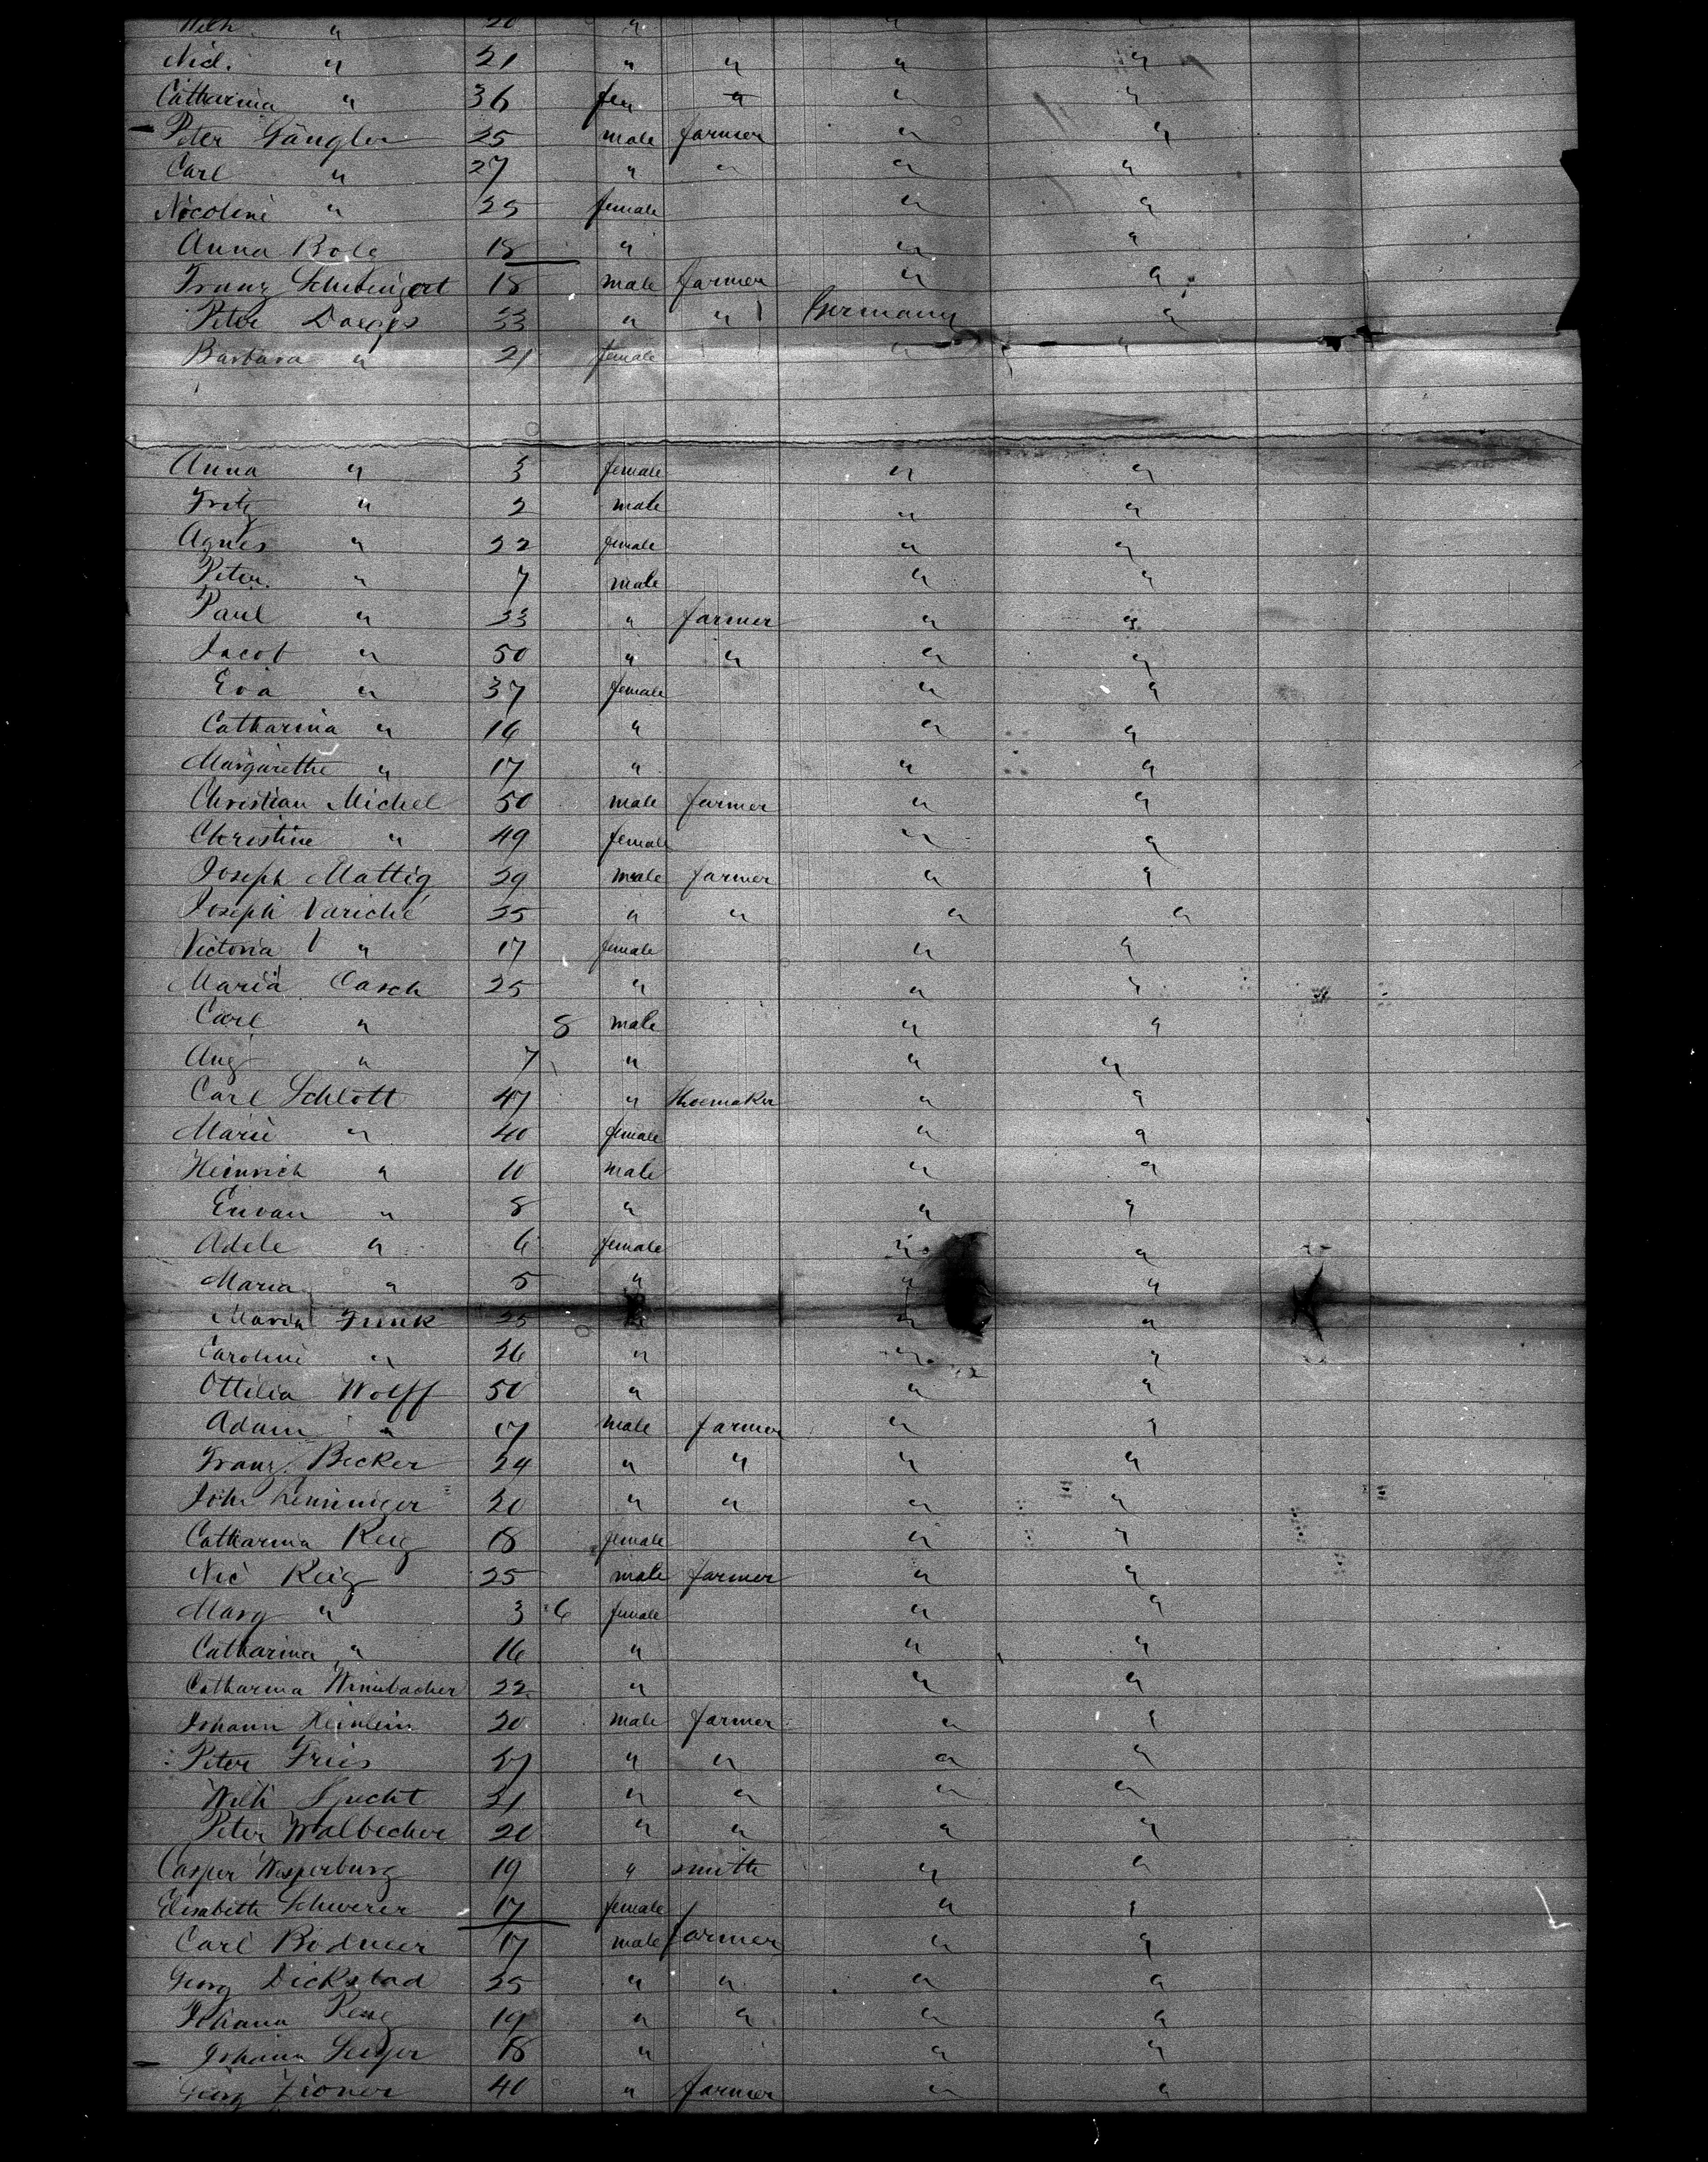 Wilh " 20 "
Nicl. " 21 " " " "
Catharina " 36 fem " " "
Peter Gängler 25 male farmer " "
Carl " 27 " " " "
Nicoline " 25 female " "
Anna Bode 18 " " "
Franz 18 male farmer " "
Peter 33 " " Germany "
Barbara " 21 female " "
Anna " 3 female " "
Fritz " 2 male " "
Agnes " 22 female " "
Peter " 7 male " "
Paul " 33 " farmer " "
Jacob " 50 " " " "
Eva " 37 female " "
Catharina " 16 " " "
Margarethe " 17 " " "
Christian Michel 50 male farmer " "
Christine " 49 female " "
Joseph Mattig 29 male farmer " "
Joseph Variché 25 " " " "
Victoria " 17 female " "
Maria Casch 25 " " "
Carl " 8 male " "
Aug " 7 " " "
Carl Schlott 47 " Shoemaker " "
Marie " 40 female " "
Heinrich " 10 male " "
" 8 " " "
Adele " 6 female " "
Maria " 5 " " "
Maria Funk 25 " " "
Caroline " 26 " " "
Ottilia Wolff 50 " " "
Adam " 17 male farmer " "
Franz Becker 24 " " " "
Joh 20 " " " "
Catharina Reig 18 female " "
Nic Reig 25 male farmer " "
Marg " 3 6 female " "
Catharina " 16 " " "
Catharina Wimbacher 22 " " "
Johann Heinlein 20 male farmer " "
Peter Fries 27 " " " "
Wilh 21 " " " "
Peter Walbecher 20 " " " "
Casper Wesperburg 19 " smith " "
Elisabeth Schwerer 17 female " "
Carl Bodmer 17 male farmer " "
Georg Dickstad 25 " " " "
Johann 19 " " " "
Johann 18 " " "
Georg Zioner 40 " farmer " "